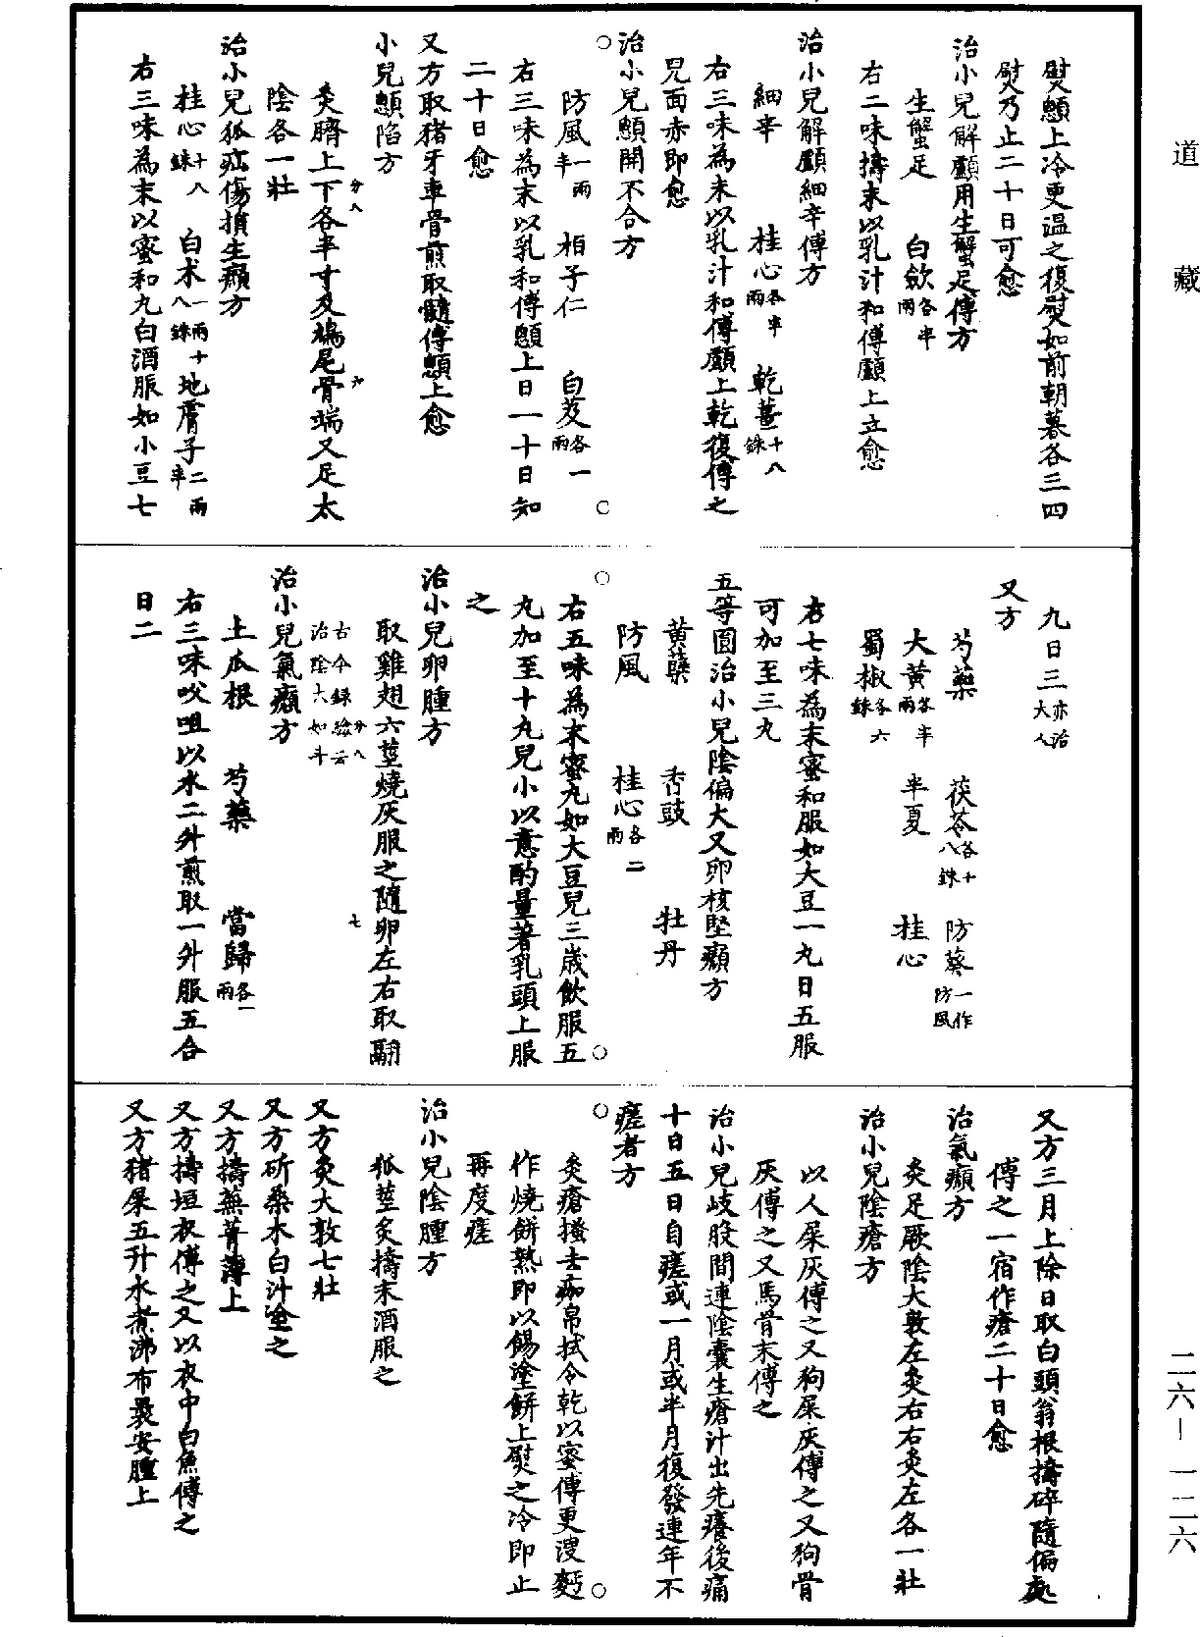 道藏
熨顖上冷更温之復熨如前朝暮各三四
熨乃止二十日可愈
治小兒解顱用生蟹足傅方
生蟹足 白斂各半兩
右二味擣末以乳汁和傅顱上立愈
治小兒解顱細辛傅方
細辛 桂心各半兩 乾薑十八銖
右三味為末以乳汁和傅顱上乾復傅之
兒面赤即愈
治小兒顖開不合方
防風一兩半 柏子仁 白芨各一兩
右三味為末以乳和傅顖上日一十日知
二十日愈
又方取猪牙車骨煎取髓傅顖上愈
小兒顖陷方
灸臍上下各半寸及鳩尾骨端又足太
陰各一壯
治小兒狐疝傷損生㿗方
桂心十八銖 白术一兩十八銖 地膚子二兩半
右三味為末以蜜和丸白酒服如小豆七
九日三亦治大人
又方
芍藥 茯苓各十八銖 防葵一作防風
大黃各半兩 半夏 桂心
蜀椒各六銖
右七味為末蜜和服如大豆一丸日五服
可加至三丸
五等圓治小兒陰偏大又卵核堅㿗方
黃蘗 香豉 牡丹
防風 桂心各二兩
右五味為末蜜丸如大豆兒三歲飲服五
丸加至十丸兒小以意酌量著乳頭上服
之
治小兒卵腫方
取雞翅六莖燒灰服之隨卵左右取翮
古今録驗云治陰大如斗
治小兒氣㿗方
土瓜根 芍藥 當歸各一兩
右三味㕮咀以水二升煎取一升服五合
日二
又方三月上除日取白頭翁根擣碎隨偏處
傅之一宿作瘡二十日愈
治氣㿗方
灸足厥陰大敦左灸右右灸左各一壯
治小兒陰瘡方
以人屎灰傅之又狗屎灰傅之又狗骨
灰傅之又馬骨末傅之
治小兒歧股間連陰囊生瘡汁出先癢後痛
十日五日自瘥或一月或半月復發連年不
瘥者方
灸瘡搔去痂帛拭令乾以蜜傅更溲麫
作燒餅熟即以餳塗餅上熨之冷即止
再度瘥
治小兒陰腫方
狐莖炙擣末酒服之
又方灸大敦七壯
又方斫桑木白汁塗之
又方擣蕪菁薄上
又方擣垣衣傅之又以衣中白魚傅之
又方猪屎五升水煮沸布裹安腫上
二六—一二六